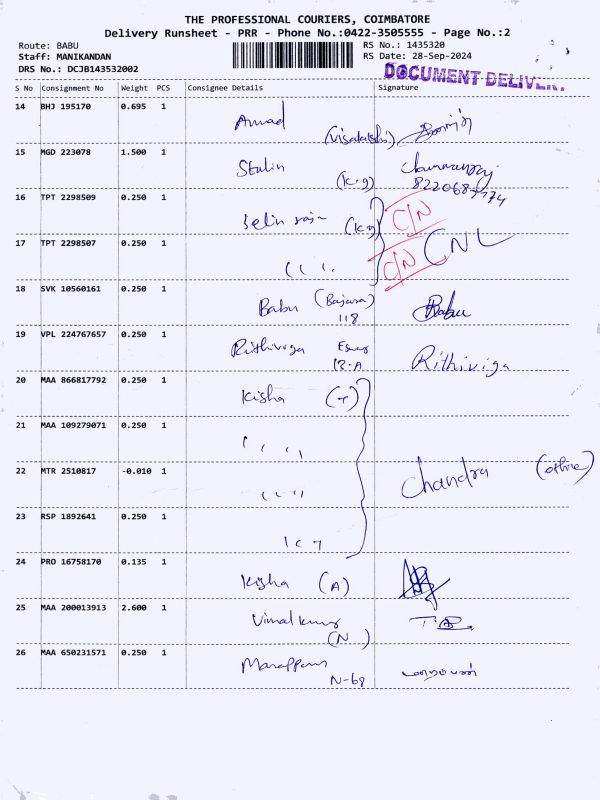 THE PROFESSIONAL COURIERS, COIMBATORE
Delivery Runsheet - PRR - Phone No.:0422-3505555 - Page No.:2
Route: BABU RS No.: 1435320
Staff: MANIKANDAN RS Date: 28-Sep-2024
DRS No.: DCJB143532002
DOCUMENT DELIVER
S No Consignment No Weight PCS Consignee Details Signature
14 BHJ 195170 0.695 1
(Visalakshi)
15 MGD 223078 1.500 1 Stalin
(K.g)
16 TPT 2298509 0.250 1 Selin raja (K.g) C/N
17 TPT 2298507 0.250 1 C/N CNL
18 SVK 10560161 0.250 1 Babu (Bajara) Babu
118
19 VPL 224767657 0.250 1 Rithiviga Rithiviga
R.A
20 MAA 866817792 0.250 1 Kisha (T)
21 MAA 109279071 0.250 1
22 MTR 2510817 -0.010 1 Chandra
23 RSP 1892641 0.250 1
24 PRO 16758170 0.135 1 Kisha (A)
25 MAA 200013913 2.600 1 Vimal kumar
(N)
26 MAA 650231571 0.250 1 Marappan
N-68